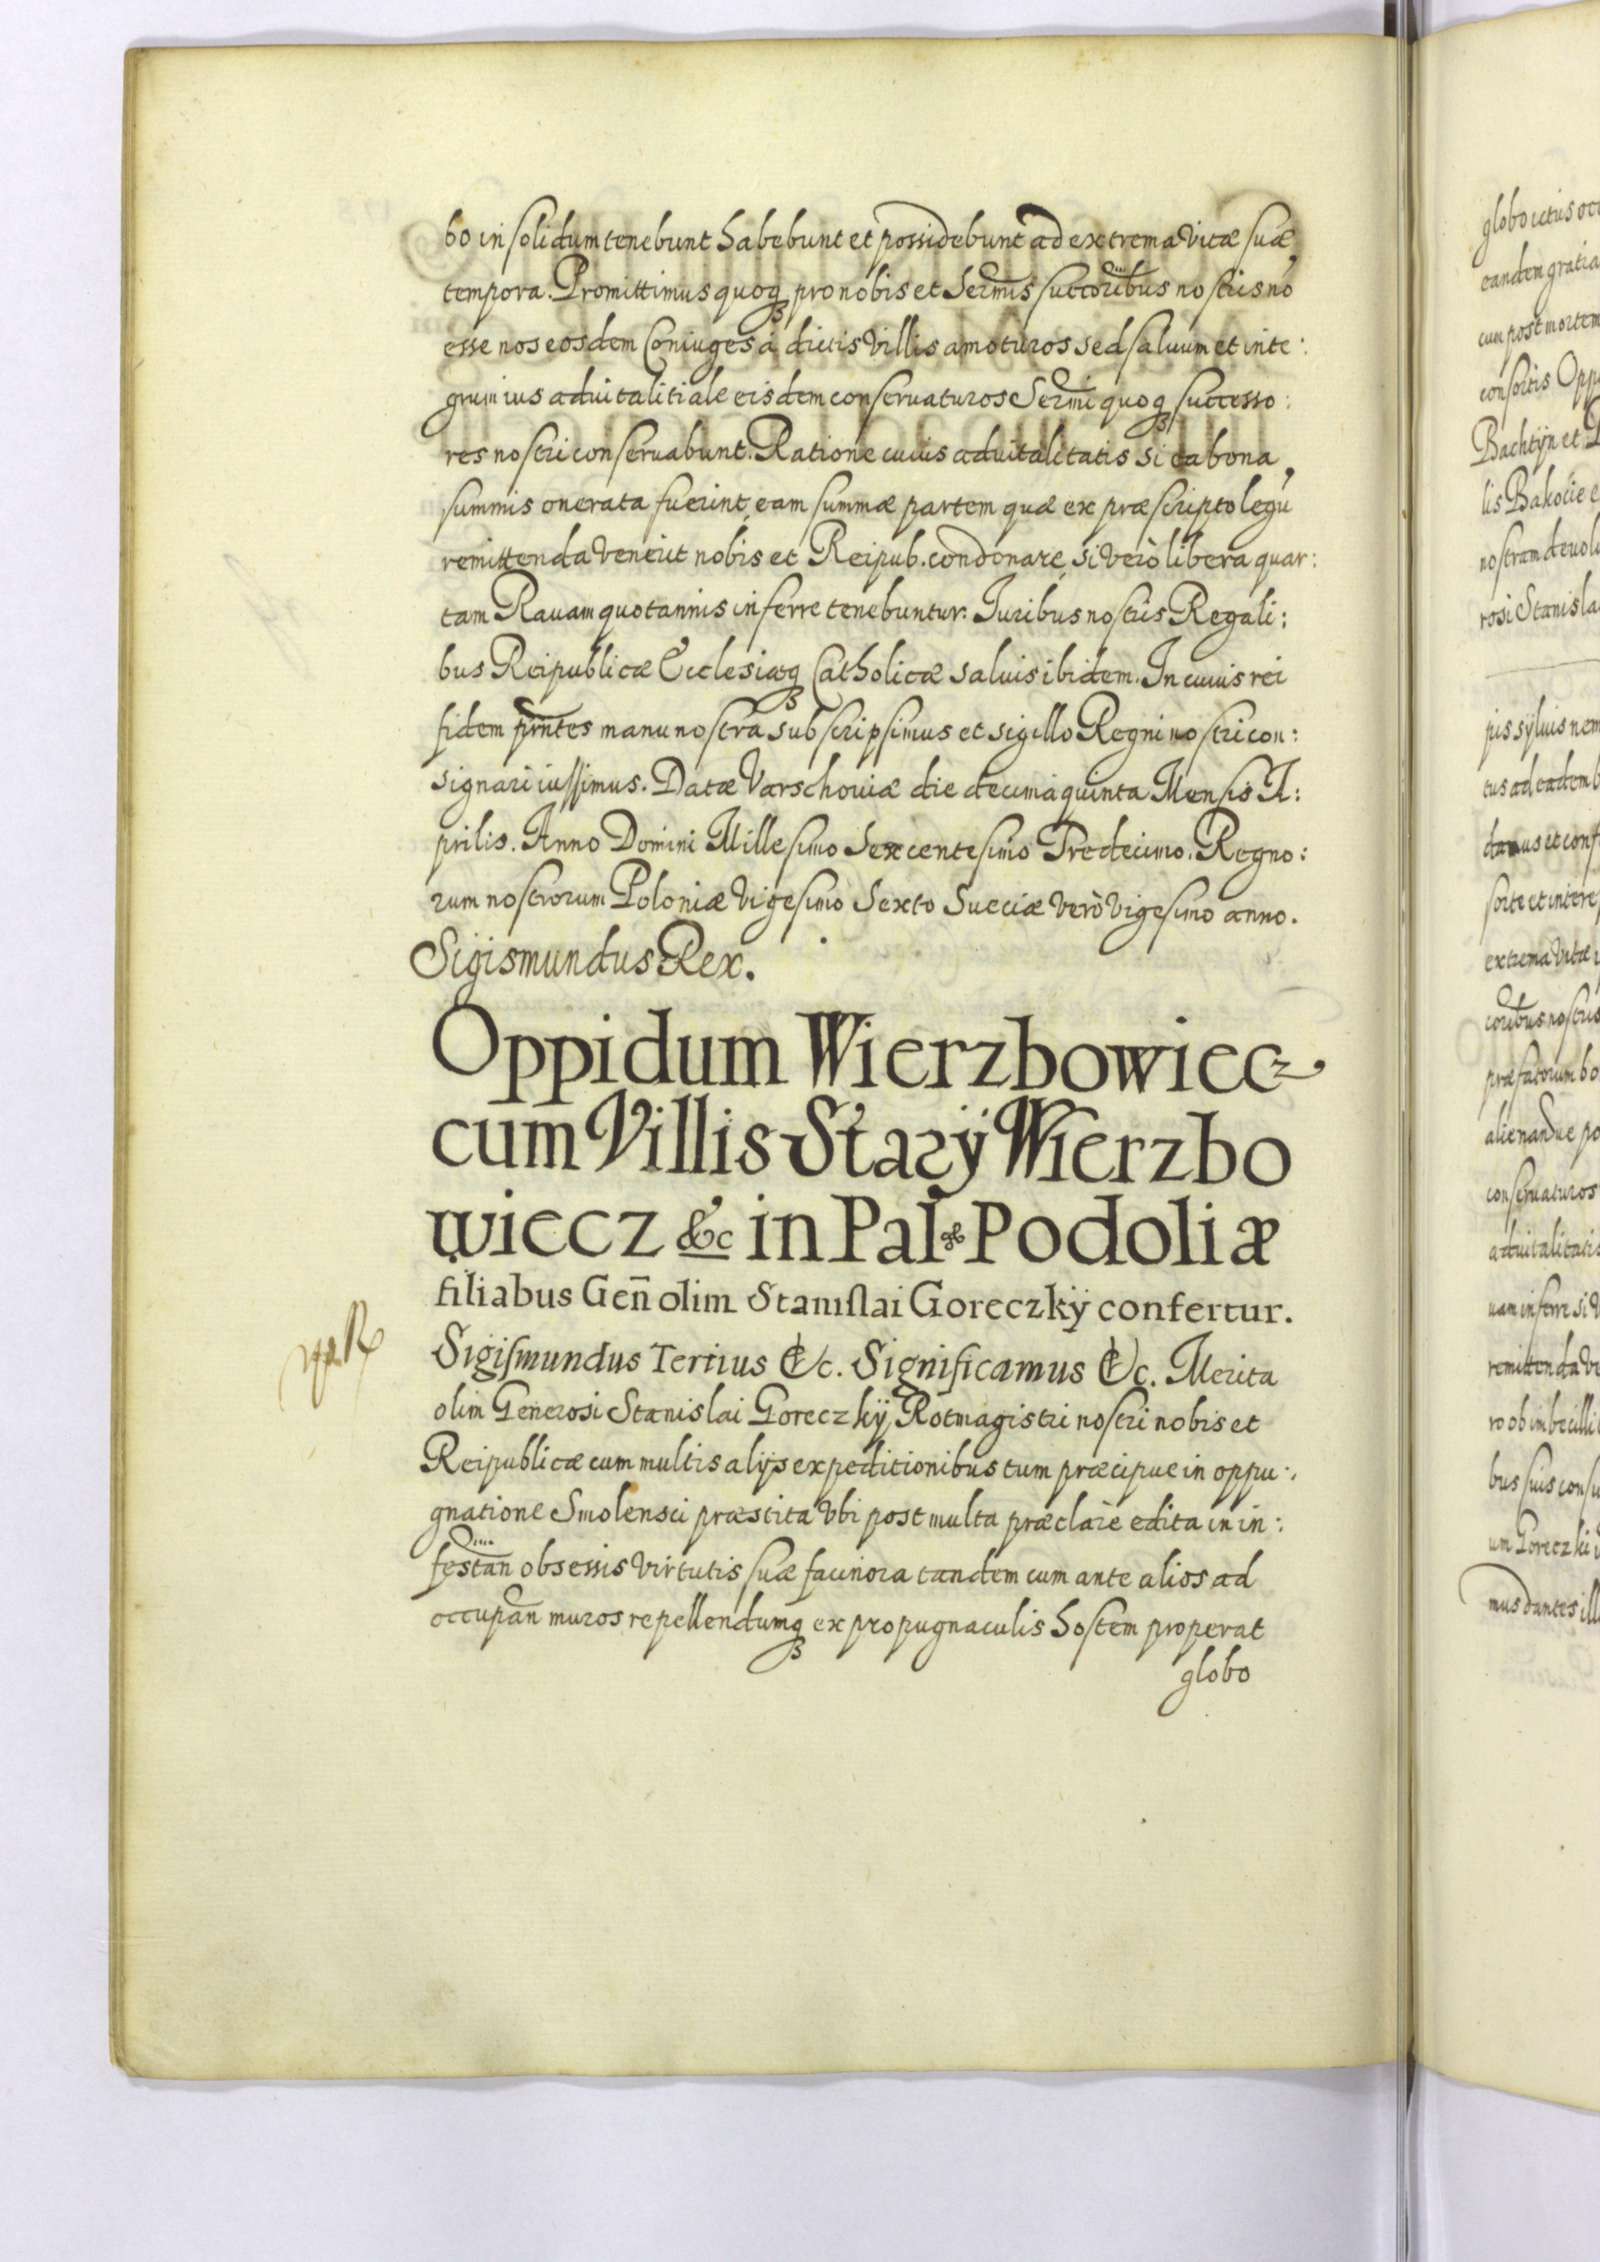 bo in solidum tenebunt habebunt et possidebunt ad extrema vitæ suæ
tempora. Promittimus quoq₃ pro nobis et Sermis succoribus nostris nō
esse nos eosdem Coniuges à dictis Villis amoturos sed salvum et inte:
grum ius advitalitiale eisdem conservaturos Sermi quoq₃ successo:
res nostri conservabunt. Ratione cuius advitalitatis si ea bona,
summis onerata fuerint, eam summæ partem quæ ex præscripto legū
remittenda veniet nobis et Reipub. condonare, si verò libera quar:
tam Ravam quotannis inferre tenebuntur. Iuribus nostris Regali:
bus Reipublicæ Ecclesiæq₃ Catholicæ salvis ibidem. In cuius rei
fidem prntes manu nostra subscripsimus et sigillo Regni nostri con:
signari iussimus. Datæ Varschoviæ die decima quinta Mensis A:
prilis. Anno Domini Millesimo Sexcentesimo Tredecimo. Regno:
rum nostrorum Poloniæ Vigesimo Sexto Sueciæ verò Vigesimo anno.
Sigismundus Rex.
Oppidum Wierzbowiecz
cum Villis Starÿ Wierzbo
wiecz &c in Pal. Podoliæ
filiabus Gen̄ olim Stanislai Goreczkÿ confertur.
Sigismundus Tertius &c. Significamus &c. Merita
olim Generosi Stanislai Goreczkÿ Rotmagistri nostri nobis et
Reipublicæ cum multis alÿs expeditionibus tum præcipue in oppu:
gnatione Smolensci præstita Vbi post multa præclarè edita in in:
festan obsessis virtutis suæ facinora tandem cum ante alios ad
occupan muros repellendumq₃ ex propugnaculis hostem properat
globo
globo ictus occ
eandem gratia
cum post mortem
consortis Opp
Bachtÿn et
lis Bakocie e
nostram devol
rosi Stanisla
pis sÿlvis nem
tus ad eadem b
damus et conf
sorte et intere
extrema vitæ
coribus nostris
præfatorum bo
alienandve po
conservaturos
advitalitatis
vam inferre si v
remittenda ve
ro ob imbecilli
bus suis consu
um Goreczki
mus dantes ill